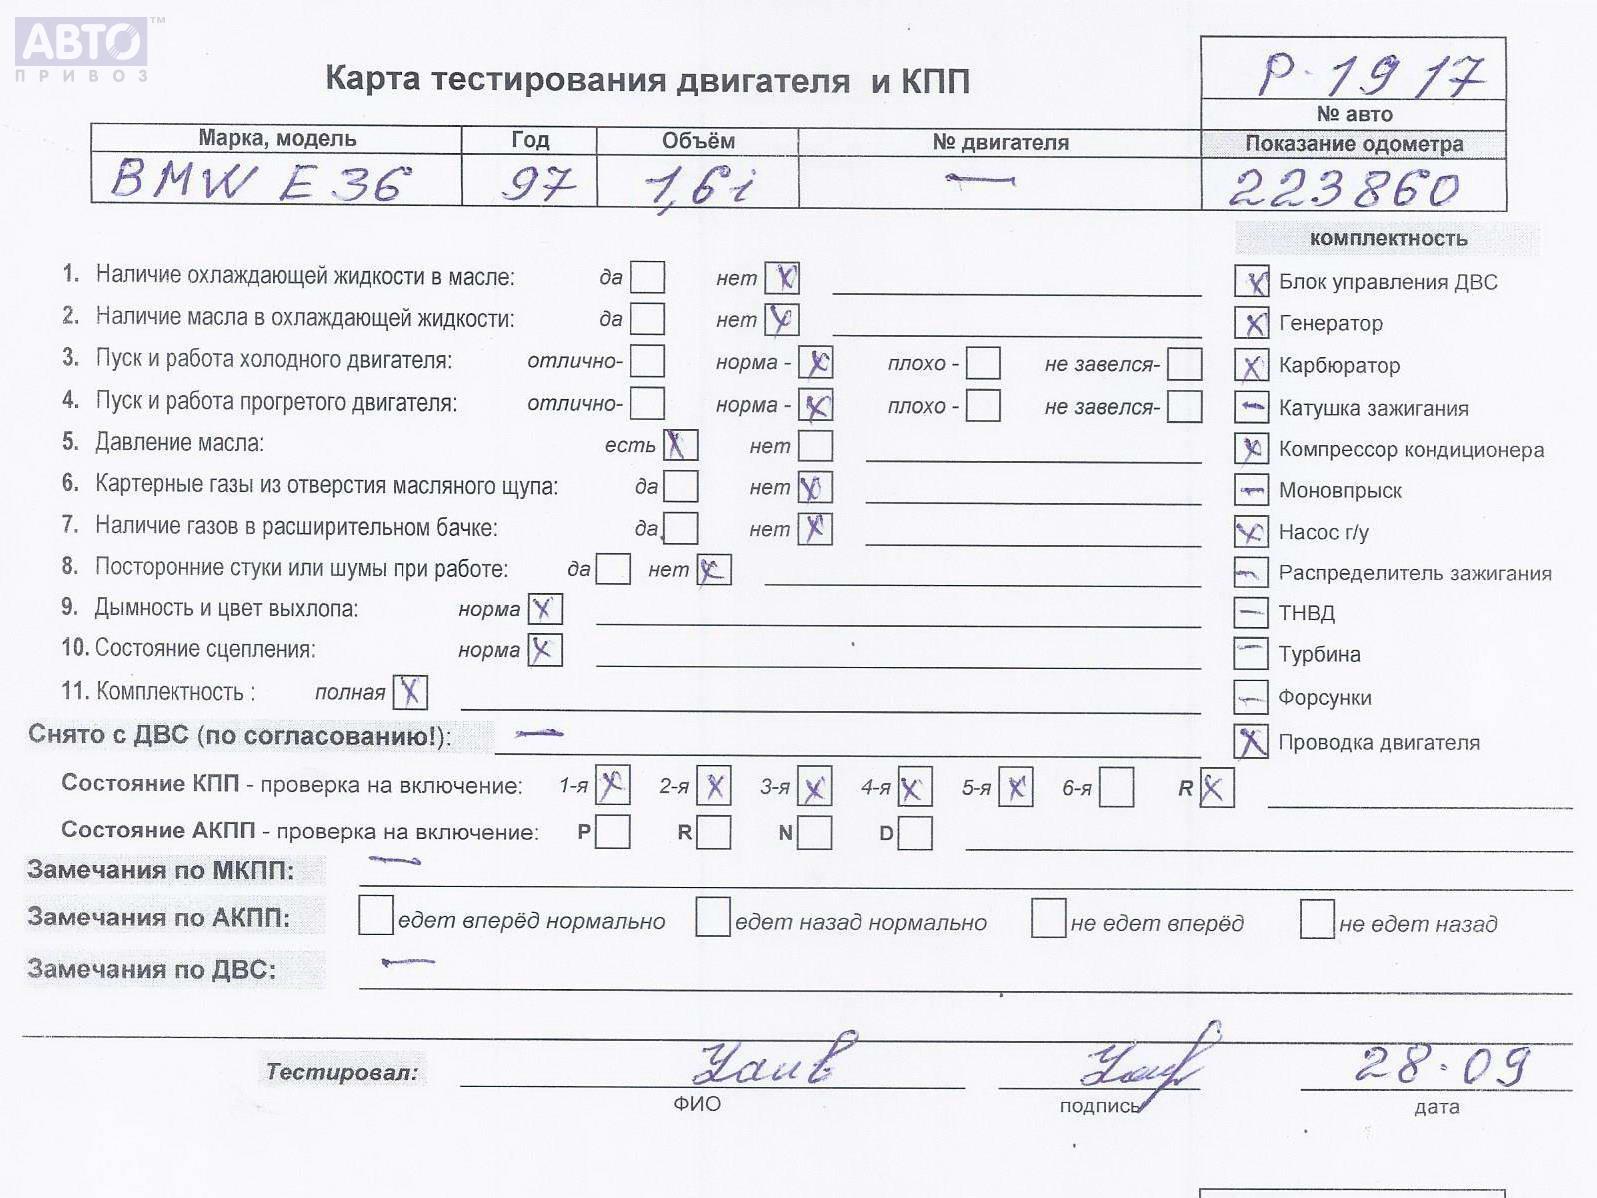 АВТО™
ПРИВОЗ
Карта тестирования двигателя и КПП
Р-1917
№ авто
Марка, модель Год Объём № двигателя Показание одометра
BMW E36 97 1,6i — 223860
комплектность
1. Наличие охлаждающей жидкости в масле: да нет X
Блок управления ДВС X
2. Наличие масла в охлаждающей жидкости: да нет X
Генератор X
3. Пуск и работа холодного двигателя: отлично- норма - X плохо - не завелся-
Карбюратор X
4. Пуск и работа прогретого двигателя: отлично- норма - X плохо - не завелся-
— Катушка зажигания
5. Давление масла: есть X нет
X Компрессор кондиционера
6. Картерные газы из отверстия масляного щупа: да нет X
— Моновпрыск
7. Наличие газов в расширительном бачке: да нет X
X Насос г/у
8. Посторонние стуки или шумы при работе: да нет X
— Распределитель зажигания
9. Дымность и цвет выхлопа: норма X
— ТНВД
10. Состояние сцепления: норма X
— Турбина
11. Комплектность : полная X
— Форсунки
Снято с ДВС (по согласованию!): —
X Проводка двигателя
Состояние КПП - проверка на включение: 1-я X 2-я X 3-я X 4-я X 5-я X 6-я R X
Состояние АКПП - проверка на включение: P R N D
Замечания по МКПП: —
Замечания по АКПП: едет вперёд нормально едет назад нормально не едет вперёд не едет назад
Замечания по ДВС: —
Тестировал: 28.09
ФИО подпись дата